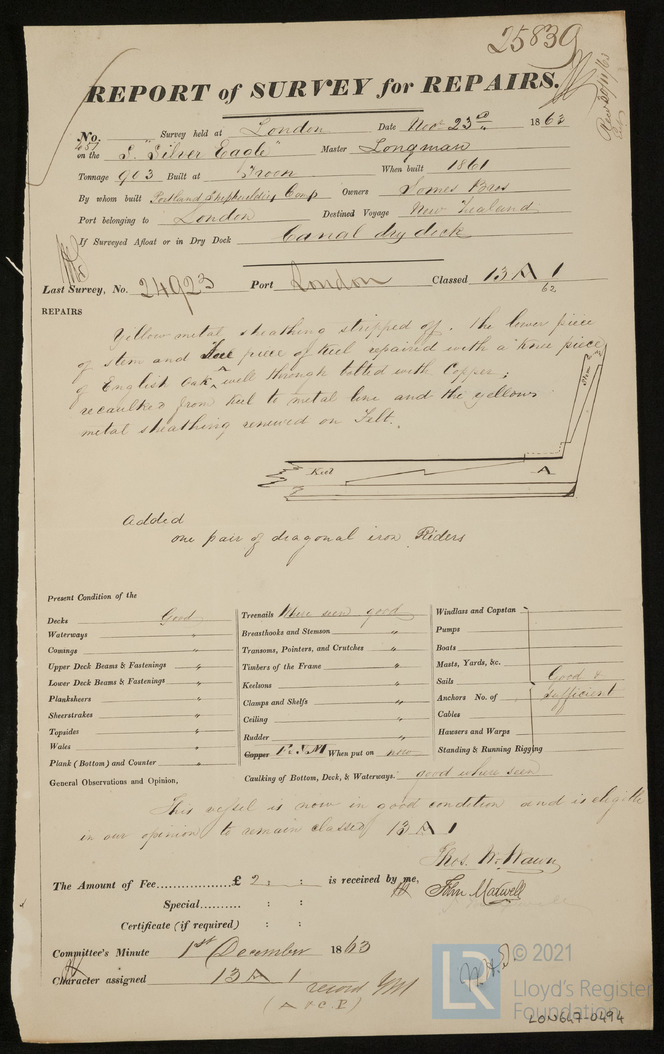 25839
REPORT of SURVEY for REPAIRS.
No. 451 Survey held at London Date Novr 23rd 1863
on the S. "Silver Eagle" Master Longman
Tonnage 903 Built at Troon When built 1861
By whom built Portland Shipbuilding Comp Owners Somes Bros
Port belonging to London Destined Voyage New Zealand
If Surveyed Afloat or in Dry Dock Canal dry dock
Last Survey, No. 24923 Port London Classed 13 A 1
62
REPAIRS
Yellow metal sheathing stripped off. The lower piece
of stem and fore piece of keel repaired with a knee piece
of English Oak, well through bolted with Copper;
recaulked from keel to metal line and the yellow
metal sheathing renewed on Felt.
Stem
Keel A
Added
one pair of diagonal iron Riders
Present Condition of the
Decks Good
Waterways "
Comings "
Upper Deck Beams & Fastenings "
Lower Deck Beams & Fastenings "
Planksheers "
Sheerstrakes "
Topsides "
Wales "
Plank (Bottom) and Counter "
Treenails Where seen good
Breasthooks and Stemson "
Transoms, Pointers, and Crutches "
Timbers of the Frame "
Keelsons "
Clamps and Shelfs "
Ceiling "
Rudder "
Copper F.Y.M When put on new
Caulking of Bottom, Deck, & Waterways: good where seen
Windlass and Capstan
Pumps
Boats
Masts, Yards, &c.
Sails Good &
Anchors No. of sufficient
Cables
Hawsers and Warps
Standing & Running Rigging
General Observations and Opinion,
This vessel is now in good condition and is eligible
in our opinion to remain classed 13 A 1
Thos. W. Wawn
The Amount of Fee............... £ 2 : : is received by me,
John Maxwell
Special.......... : :
Certificate (if required) : :
Committee's Minute 1st December 1863
Character assigned 13 A 1
record YM
(A & C.P.)
© 2021
LR Lloyd's Register
Foundation
LON647-0494